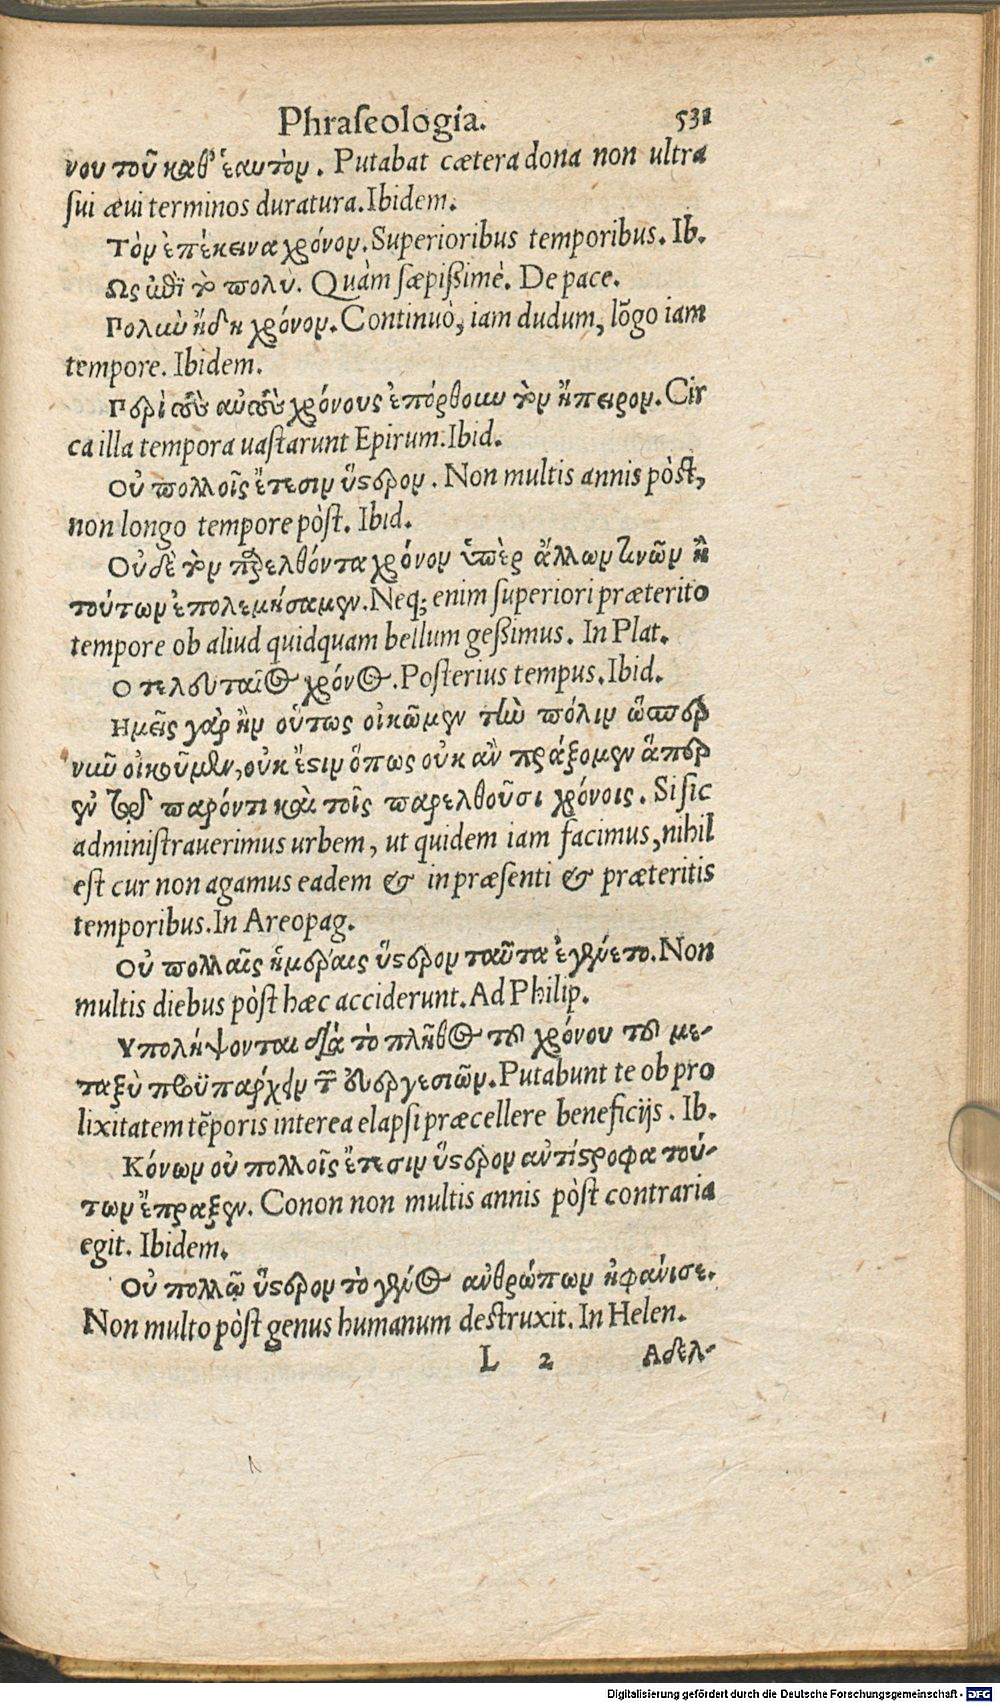 Phraseologia. 531
νου τοῦ καθ' ἑαυτὸν. Putabat cætera dona non ultra
sui ævi terminos duratura. Ibidem.
Τὸν ἐπέκεινα χρόνον. Superioribus temporibus. Ib.
Ως ἐπὶ τὸ πολὺ. Quàm sæpißimè. De pace.
Πολιὺ ἤδη χρόνον. Continuò, iam dudum, lõgo iam
tempore. Ibidem.
Περὶ τοὺς αὐτοὺς χρόνους ἐπόρθουν τὴν ἤπειρον. Cir
ca illa tempora uastarunt Epirum. Ibid.
Οὐ πολλοῖς ἔτεσιν ὕστερον. Non multis annis pòst,
non longo tempore pòst. Ibid.
Οὐδὲ τὸν παρελθόντα χρόνον ὑπὲρ ἄλλων τινῶν ἢ
τούτων ἐπολεμήσαμεν. Neq; enim superiori præterito
tempore ob aliud quidquam bellum geßimus. In Plat.
Ο τελευταῖος χρόνος. Posterius tempus. Ibid.
Ημεῖς γὰρ ἢν οὕτως οἰκῶμεν τὴν πόλιν ὥσπερ
νιῦ οἰκοῦμεν, οὐκ ἔστιν ὅπως οὐκ ἂν πράξομεν ἅπερ
ἐν τῷ παρόντι καὶ τοῖς παρελθοῦσι χρόνοις. Si sic
administrauerimus urbem, ut quidem iam facimus, nihil
est cur non agamus eadem & in præsenti & præteritis
temporibus. In Areopag.
Οὐ πολλαῖς ἡμέραις ὕστερον ταῦτα ἐγένετο. Non
multis diebus pòst hæc acciderunt. Ad Philip.
Υπολήψονται διὰ τὸ πλῆθος τοῦ χρόνου τοῦ με-
ταξὺ προϋπάρχειν τῶν εὐεργεσιῶν. Putabunt te ob pro
lixitatem tẽporis interea elapsi præcellere beneficijs. Ib.
Κόνων οὐ πολλοῖς ἔτεσιν ὕστερον αὐτίστροφα τού-
των ἔπραξεν. Conon non multis annis pòst contraria
egit. Ibidem.
Οὐ πολλῷ ὕστερον τὸ γένος ἀνθρώπων ἠφάνισε.
Non multo pòst genus humanum destruxit. In Helen.
L 2 Αδελ-
Digitalisierung gefördert durch die Deutsche Forschungsgemeinschaft - DFG